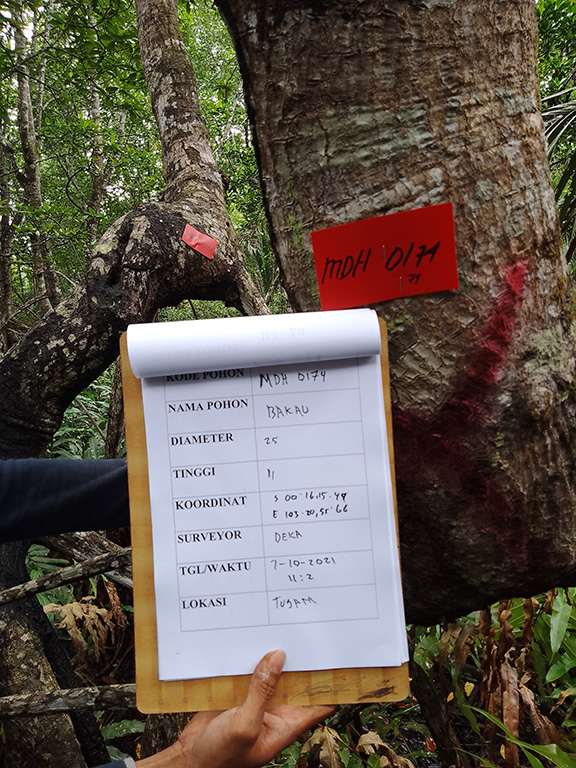 MDH 0174
74
KODE POHON MDH 0174
NAMA POHON BAKAU
DIAMETER 25
TINGGI 11
KOORDINAT S 00.16.15.49
E 103.20,55.66
SURVEYOR DEKA
TGL/WAKTU 7-10-2021
11:2
LOKASI